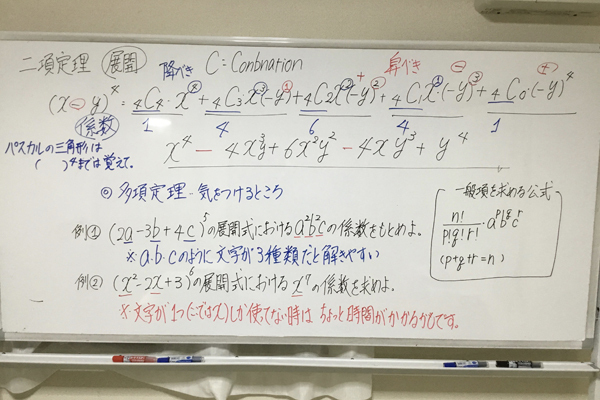 二項定理 展開 降べき C:Conbnation 昇べき
(x-y)⁴=₄C₄·x⁴+₄C₃x³(-y)¹+₄C₂x²(-y)²+₄C₁x¹(-y)³+₄C₀·(-y)⁴
係数 1 4 6 4 1
パスカルの三角形は
( )⁴までは覚えて。
x⁴-4x³y+6x²y²-4xy³+y⁴
◎多項定理-気をつけるところ
例①(2a-3b+4c)⁵の展開式におけるa²b²cの係数をもとめよ。
※a.b.cのように文字が3種類だと解きやすい
例②(x²-2x+3)⁶の展開式におけるx⁷の係数を求めよ。
※文字が1つ(ここではx)しか使ってない時は ちょっと時間がかかるかもです。
一般項を求める公式
n!/p!q!r!·aᵖb^qcʳ
(p+q+r=n)